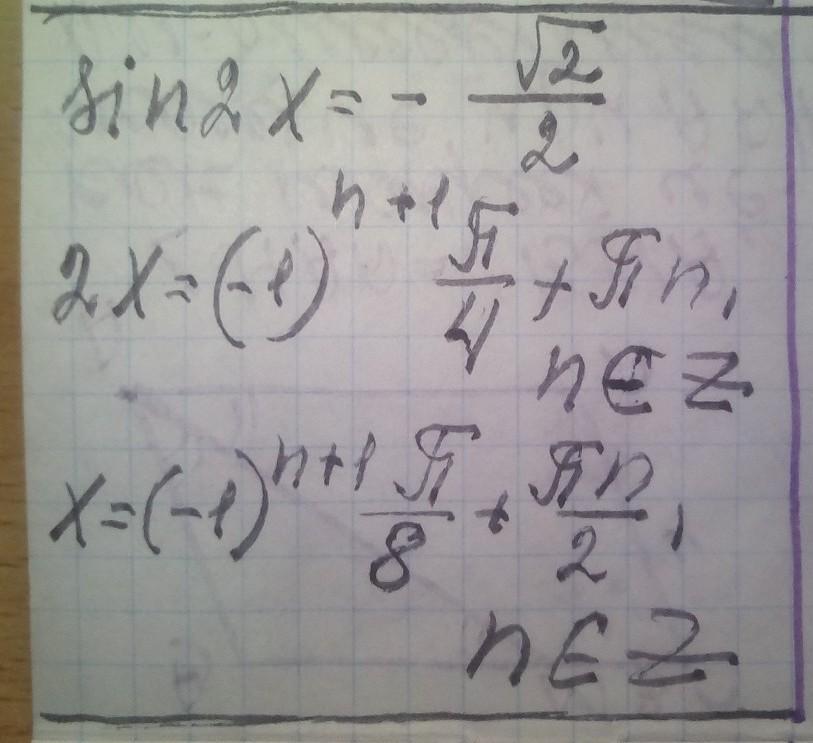 sin2x = - √2/2
2x = (-1)^(n+1) π/4 + πn,
n ∈ Z
x = (-1)^(n+1) π/8 + πn/2,
n ∈ Z